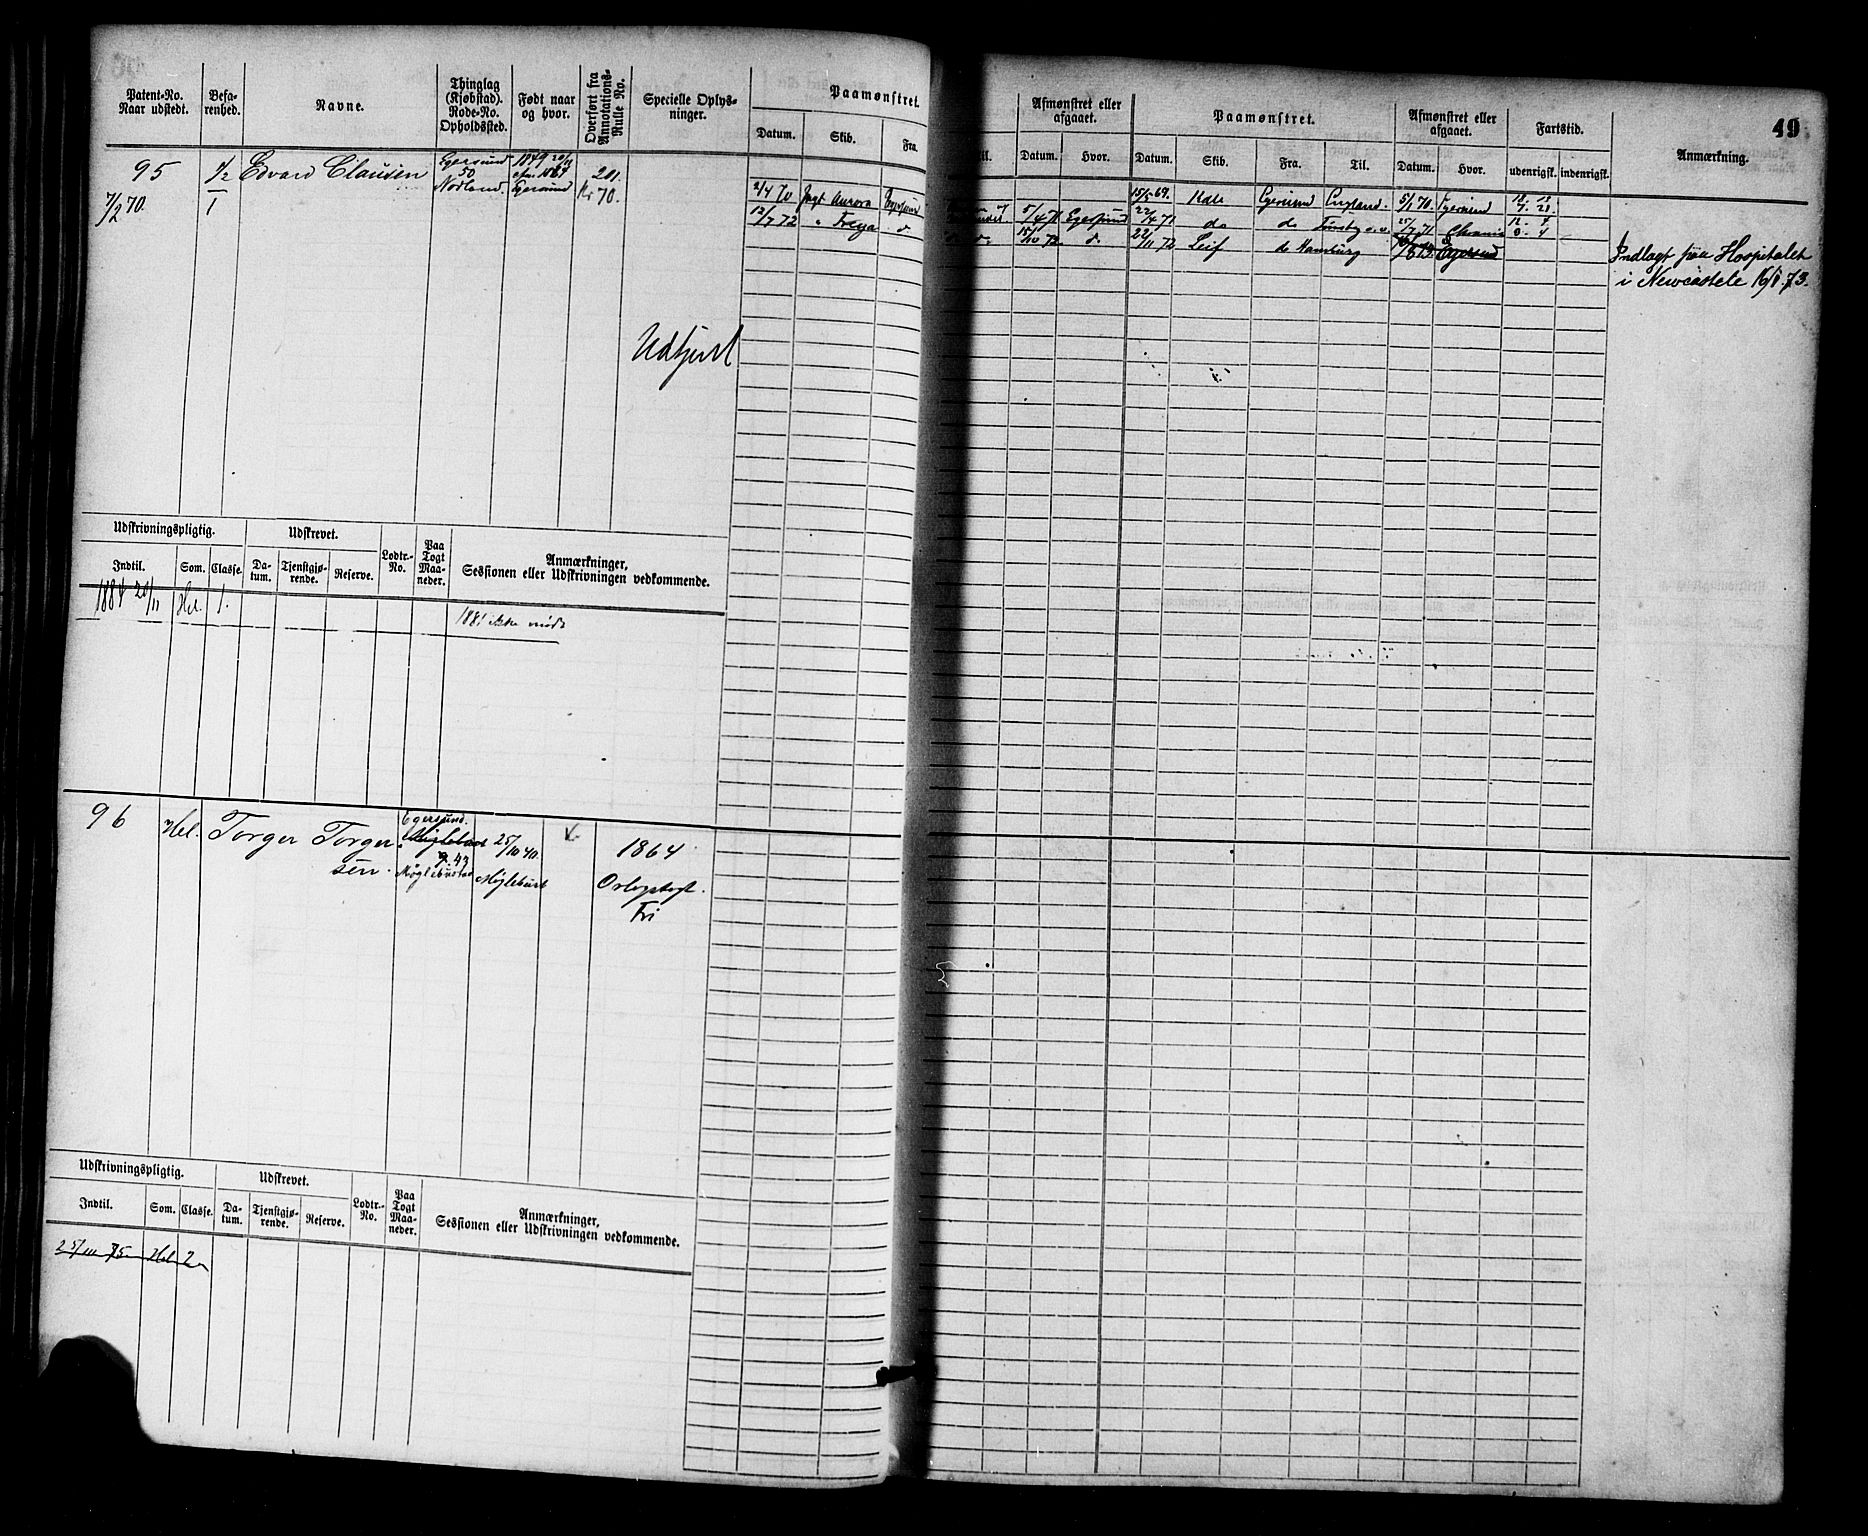 49
Patent-No. Naar udstedt.
Befarenhed.
Navne.
Thinglag (Kjøbstad). Rode-No. Opholdssted.
Født naar og hvor.
Overført fra Annotations-Rulle No.
Specielle Oplysninger.
Paamønstret.
Datum. Skib. Fra.
Til.
Afmønstret eller afgaaet.
Datum. Hvor.
Paamønstret.
Datum. Skib. Fra. Til.
Afmønstret eller afgaaet.
Datum. Hvor.
Fartstid.
udenrigsk. indenrigsk.
Anmærkning.
95 1/2 Edvard Clausen
7/2 70. 1
Egersund
50
Nodland
1849 20/11
Egersund
201
70.
Udført
2/4 70 Jagt Aurora Egersund
5/4 71 Egersund
12/7 72 " Freya d
15/10 72 d.
15/5 69. Kale Egersund England. 5/1 70. Egersund
22/4 71 do do 25/7 71 Chrania
22/11 72 Leif do Hamburg Egersund
Indlagt paa Hospitalet
i Newcastele 16/1.73.
Udskrivningspligtig.
Indtil. Som. Classe.
Udskrevet.
Datum. Tjenstgjørende. Reserve.
Lodtr.-No.
Paa Togt Maaneder.
Anmærkninger, Sessionen eller Udskrivningen vedkommende.
1884 20/11 Hel. 1.
1881 ikke mødt
96 Hel. Torger Torger
sen.
Egersund.
43
Møglebustad
25/10 40.
Møglebust
1864
Orlogstogt.
Fri
Udskrivningspligtig.
Indtil. Som. Classe.
Udskrevet.
Datum. Tjenstgjørende. Reserve.
Lodtr.-No.
Paa Togt Maaneder.
Anmærkninger, Sessionen eller Udskrivningen vedkommende.
25/10 75 Hel. 2